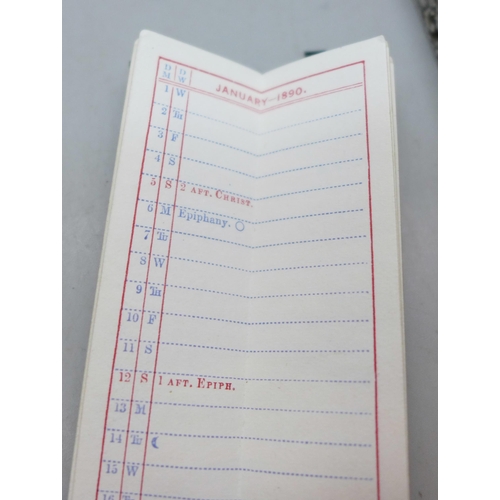 D M D W JANUARY—1890.
1 W
2 Th
3 F
4 S
5 S 2 AFT. CHRIST.
6 M Epiphany. ○
7 Tu
8 W
9 Th
10 F
11 S
12 S 1 AFT. EPIPH.
13 M
14 Tu ☾
15 W
16